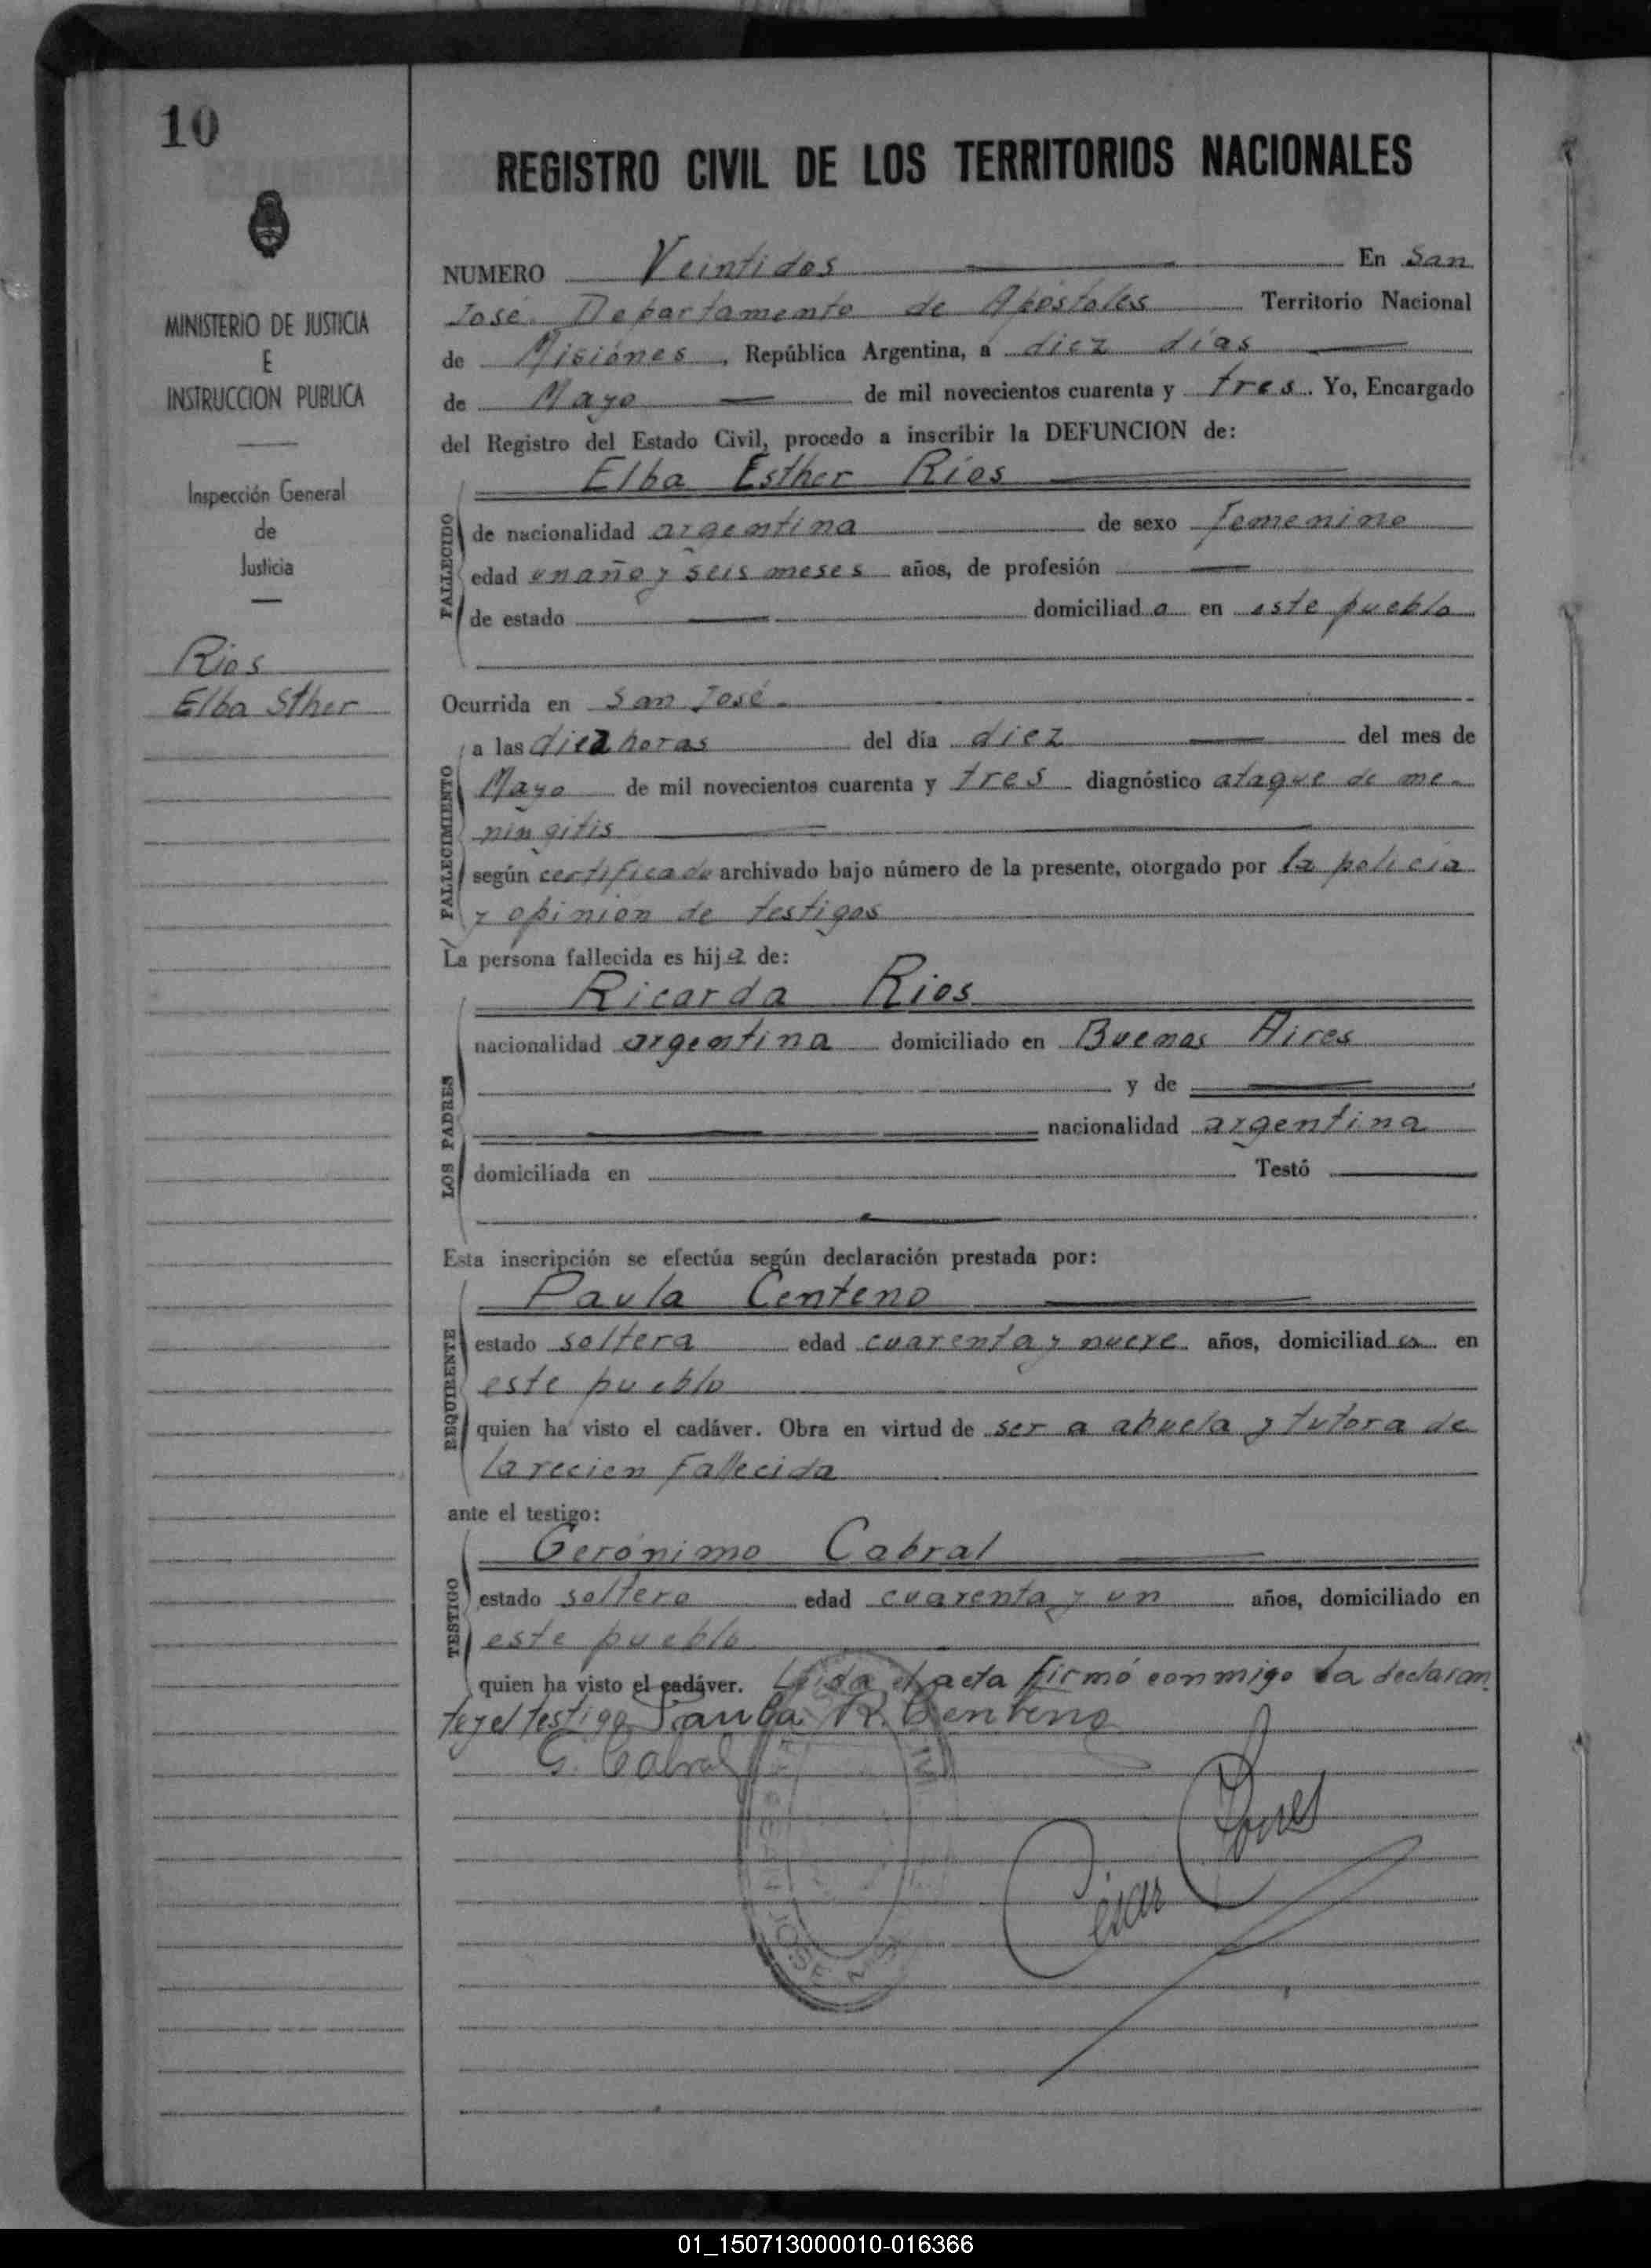 10
MINISTERIO DE JUSTICIA
E
INSTRUCCION PUBLICA
Inspección General
de
Justicia
Rios
Elba Sther
REGISTRO CIVIL DE LOS TERRITORIOS NACIONALES
NUMERO Veintidos En San
José Departamento de Apóstoles Territorio Nacional
de Misiónes, República Argentina, a diez días
de Mayo de mil novecientos cuarenta y tres. Yo, Encargado
del Registro del Estado Civil, procedo a inscribir la DEFUNCION de:
Elba Esther Ríos
FALLECIDO
de nacionalidad argentina de sexo femenino
edad un año y seis meses años, de profesión
de estado domiciliad a en este pueblo
Ocurrida en San José
FALLECIMIENTO
a las diez horas del día diez del mes de
Mayo de mil novecientos cuarenta y tres diagnóstico ataque de me-
ningitis
según certificado archivado bajo número de la presente, otorgado por la policía
y opinión de testigos
La persona fallecida es hija de:
Ricarda Rios
LOS PADRES
nacionalidad argentina domiciliado en Buenos Aires
y de
nacionalidad argentina
domiciliada en Testó
Esta inscripción se efectúa según declaración prestada por:
Paula Centeno
REQUIRENTE
estado soltera edad cuarenta y nueve años, domiciliad a en
este pueblo
quien ha visto el cadáver. Obra en virtud de ser a abuela y tutora de
la recien fallecida
ante el testigo:
Gerónimo Cabral
TESTIGO
estado soltero edad cuarenta y un años, domiciliado en
este pueblo
quien ha visto el cadáver. Leida el acta firmó conmigo la declaran
te y el testigo Paula R. Centeno
G. Cabral
César
JOSE
01_150713000010-016366